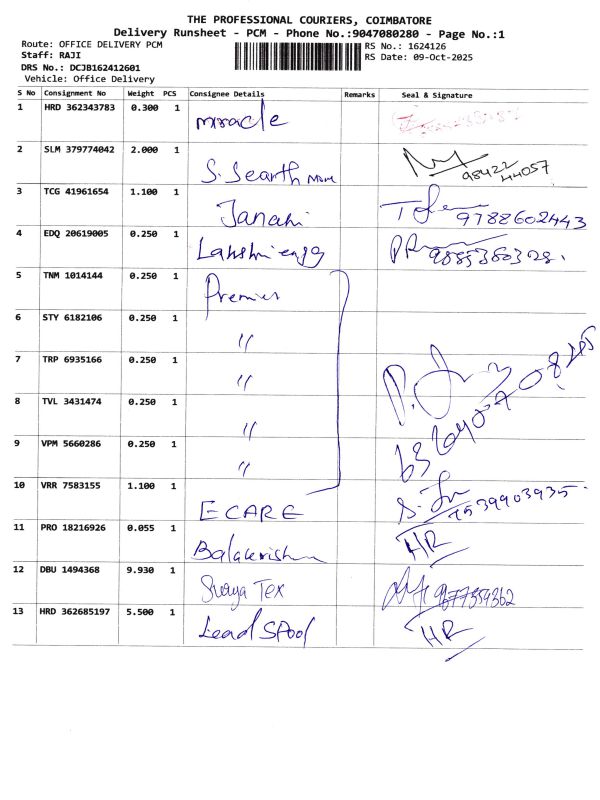 THE PROFESSIONAL COURIERS, COIMBATORE
Delivery Runsheet - PCM - Phone No.:9047080280 - Page No.:1
Route: OFFICE DELIVERY PCM
Staff: RAJI
DRS No.: DCJB162412601
Vehicle: Office Delivery
RS No.: 1624126
RS Date: 09-Oct-2025
S No Consignment No Weight PCS Consignee Details Remarks Seal & Signature
1 HRD 362343783 0.300 1 miracle
2 SLM 379774042 2.000 1 S. Searth 98422 44057
3 TCG 41961654 1.100 1 Janaki 9788602443
4 EDQ 20619005 0.250 1 Lakshmi engg
5 TNM 1014144 0.250 1 Premier
6 STY 6182106 0.250 1 "
7 TRP 6935166 0.250 1 "
8 TVL 3431474 0.250 1 "
9 VPM 5660286 0.250 1 "
10 VRR 7583155 1.100 1 ECARE 7539903935
11 PRO 18216926 0.055 1 Balakrishn HR
12 DBU 1494368 9.930 1 Tex
13 HRD 362685197 5.500 1 Lead Spool HR